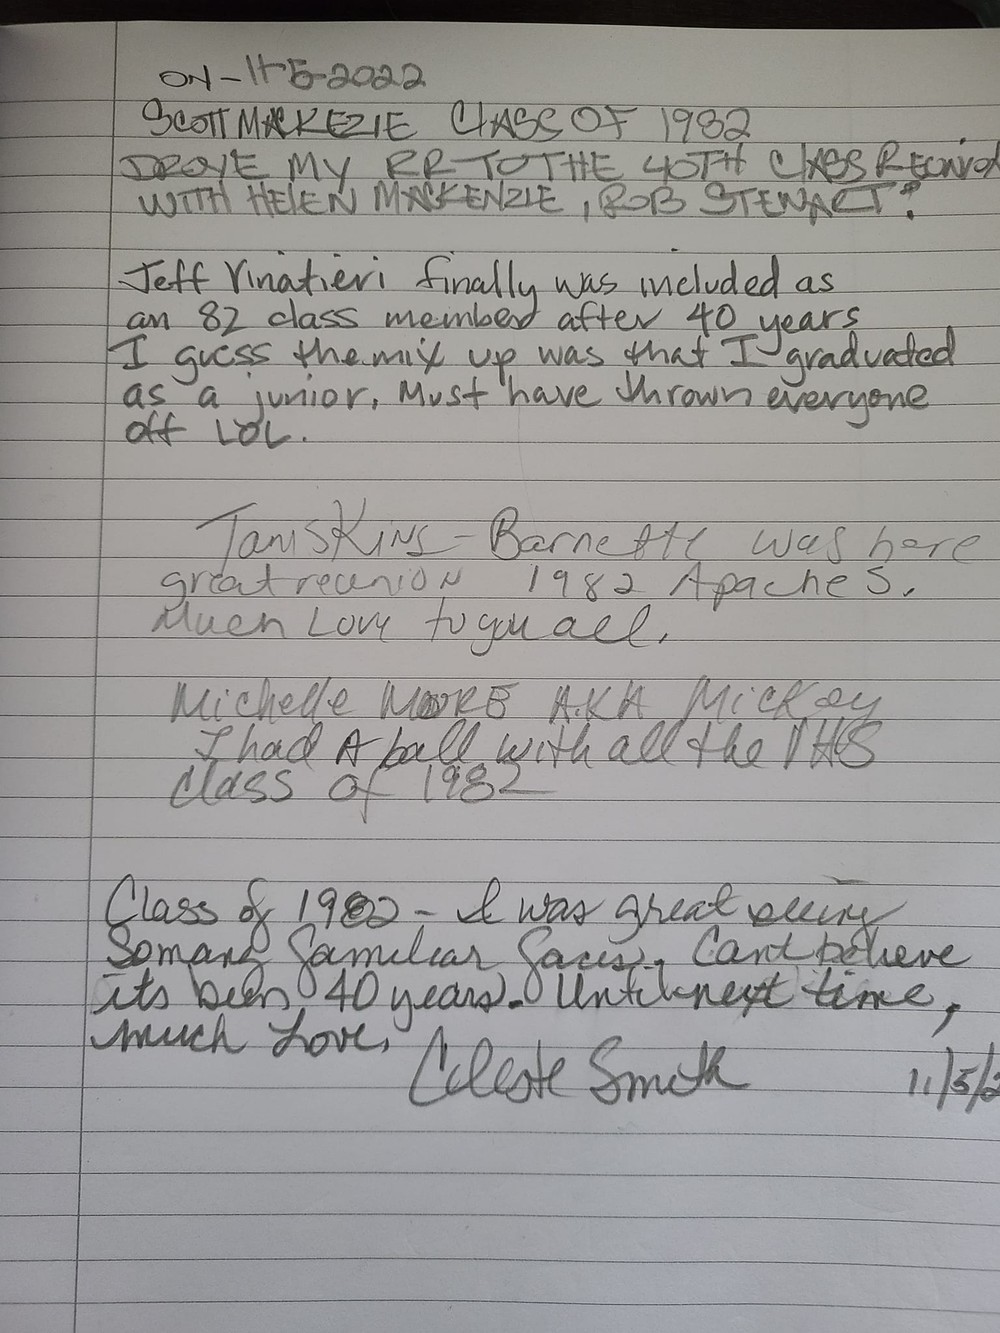 ON - 11-5-2022
SCOTT MACKEZIE CLASS OF 1982
DROVE MY RR TO THE 40TH CLASS REUNION
WITH HELEN MACKENZIE, ROB STEWART?
Jeff Vinatieri finally was included as
an 82 class member after 40 years
I guess the mix up was that I graduated
as a junior. Must have thrown everyone
off LOL.
King-Barnett was here
great reunion 1982 Apaches.
Much Love to you all.
Michelle MOORE A.K.A Mickey
I had A ball with all the
class of 1982
Class of 1982 - It was great seeing
So many familiar faces. Cant believe
its been 40 years. Until next time,
much Love,
Celeste Smith 11/5/2